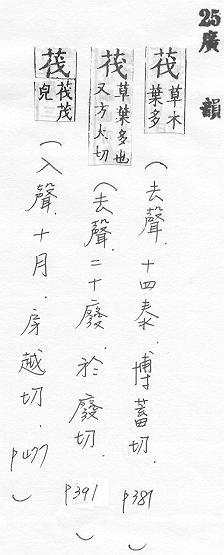 25廣韻
茷草木葉多（去聲．十四泰．博蓄切．p381）
茷草葉多也又方大切（去聲二十廢．於廢切．p391）
茷茷茂皃（入聲．十月．房越切．p477）